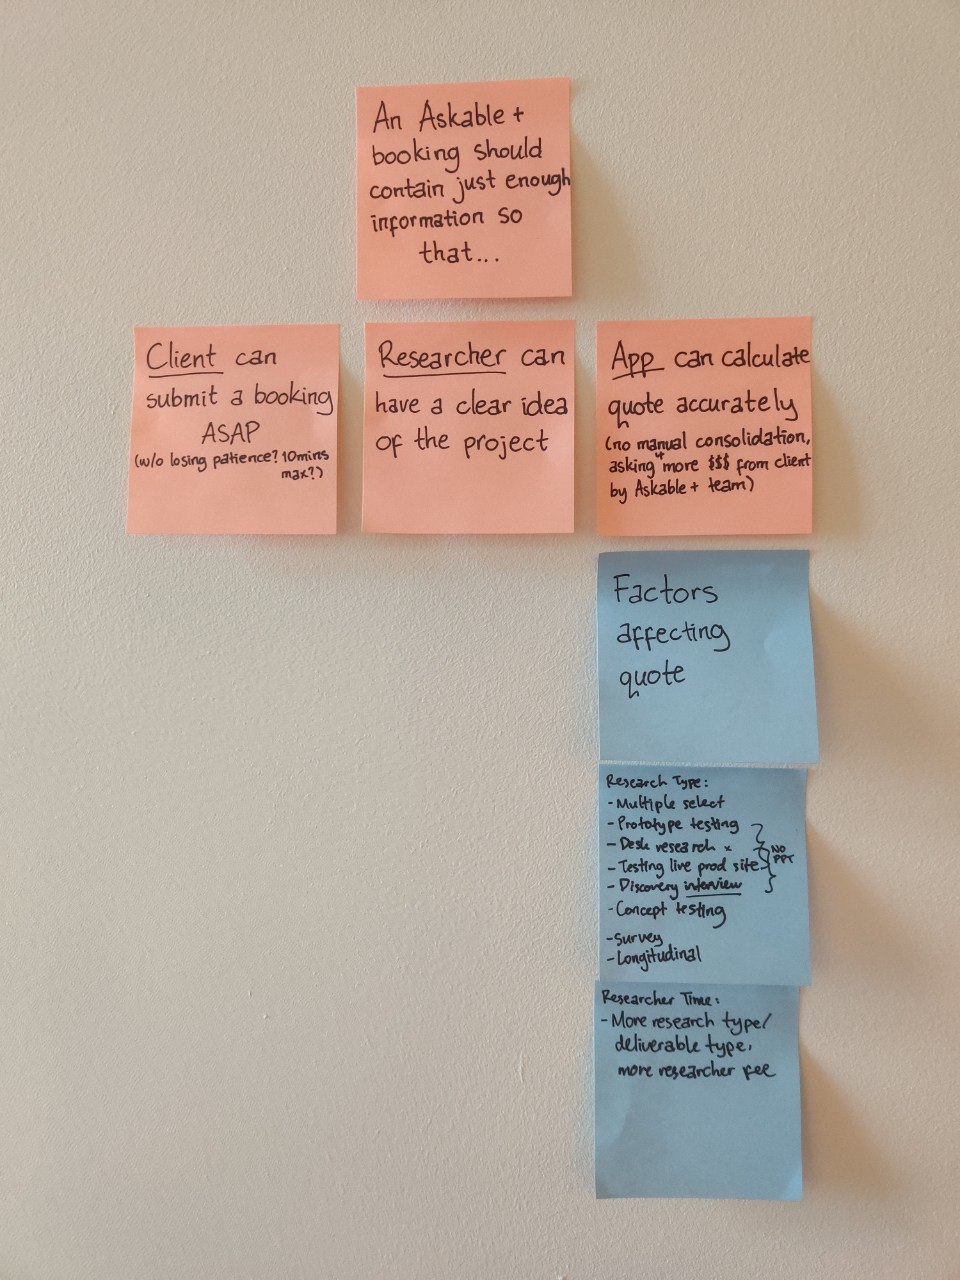 An Askable +
booking should
contain just enough
information so
that...
Client can
submit a booking
ASAP
(w/o losing patience? 10mins
max?)
Researcher can
have a clear idea
of the project
App can calculate
quote accurately
(no manual consolidation,
asking 4 more $$$ from client
by Askable + team)
Factors
affecting
quote
Research Type:
- Multiple select
- Prototype testing
- Desk research x
- Testing live prod site
- Discovery interview
- Concept testing
- Survey
- Longitudinal
NO
PPT
Researcher Time:
- More research type/
deliverable type,
more researcher fee